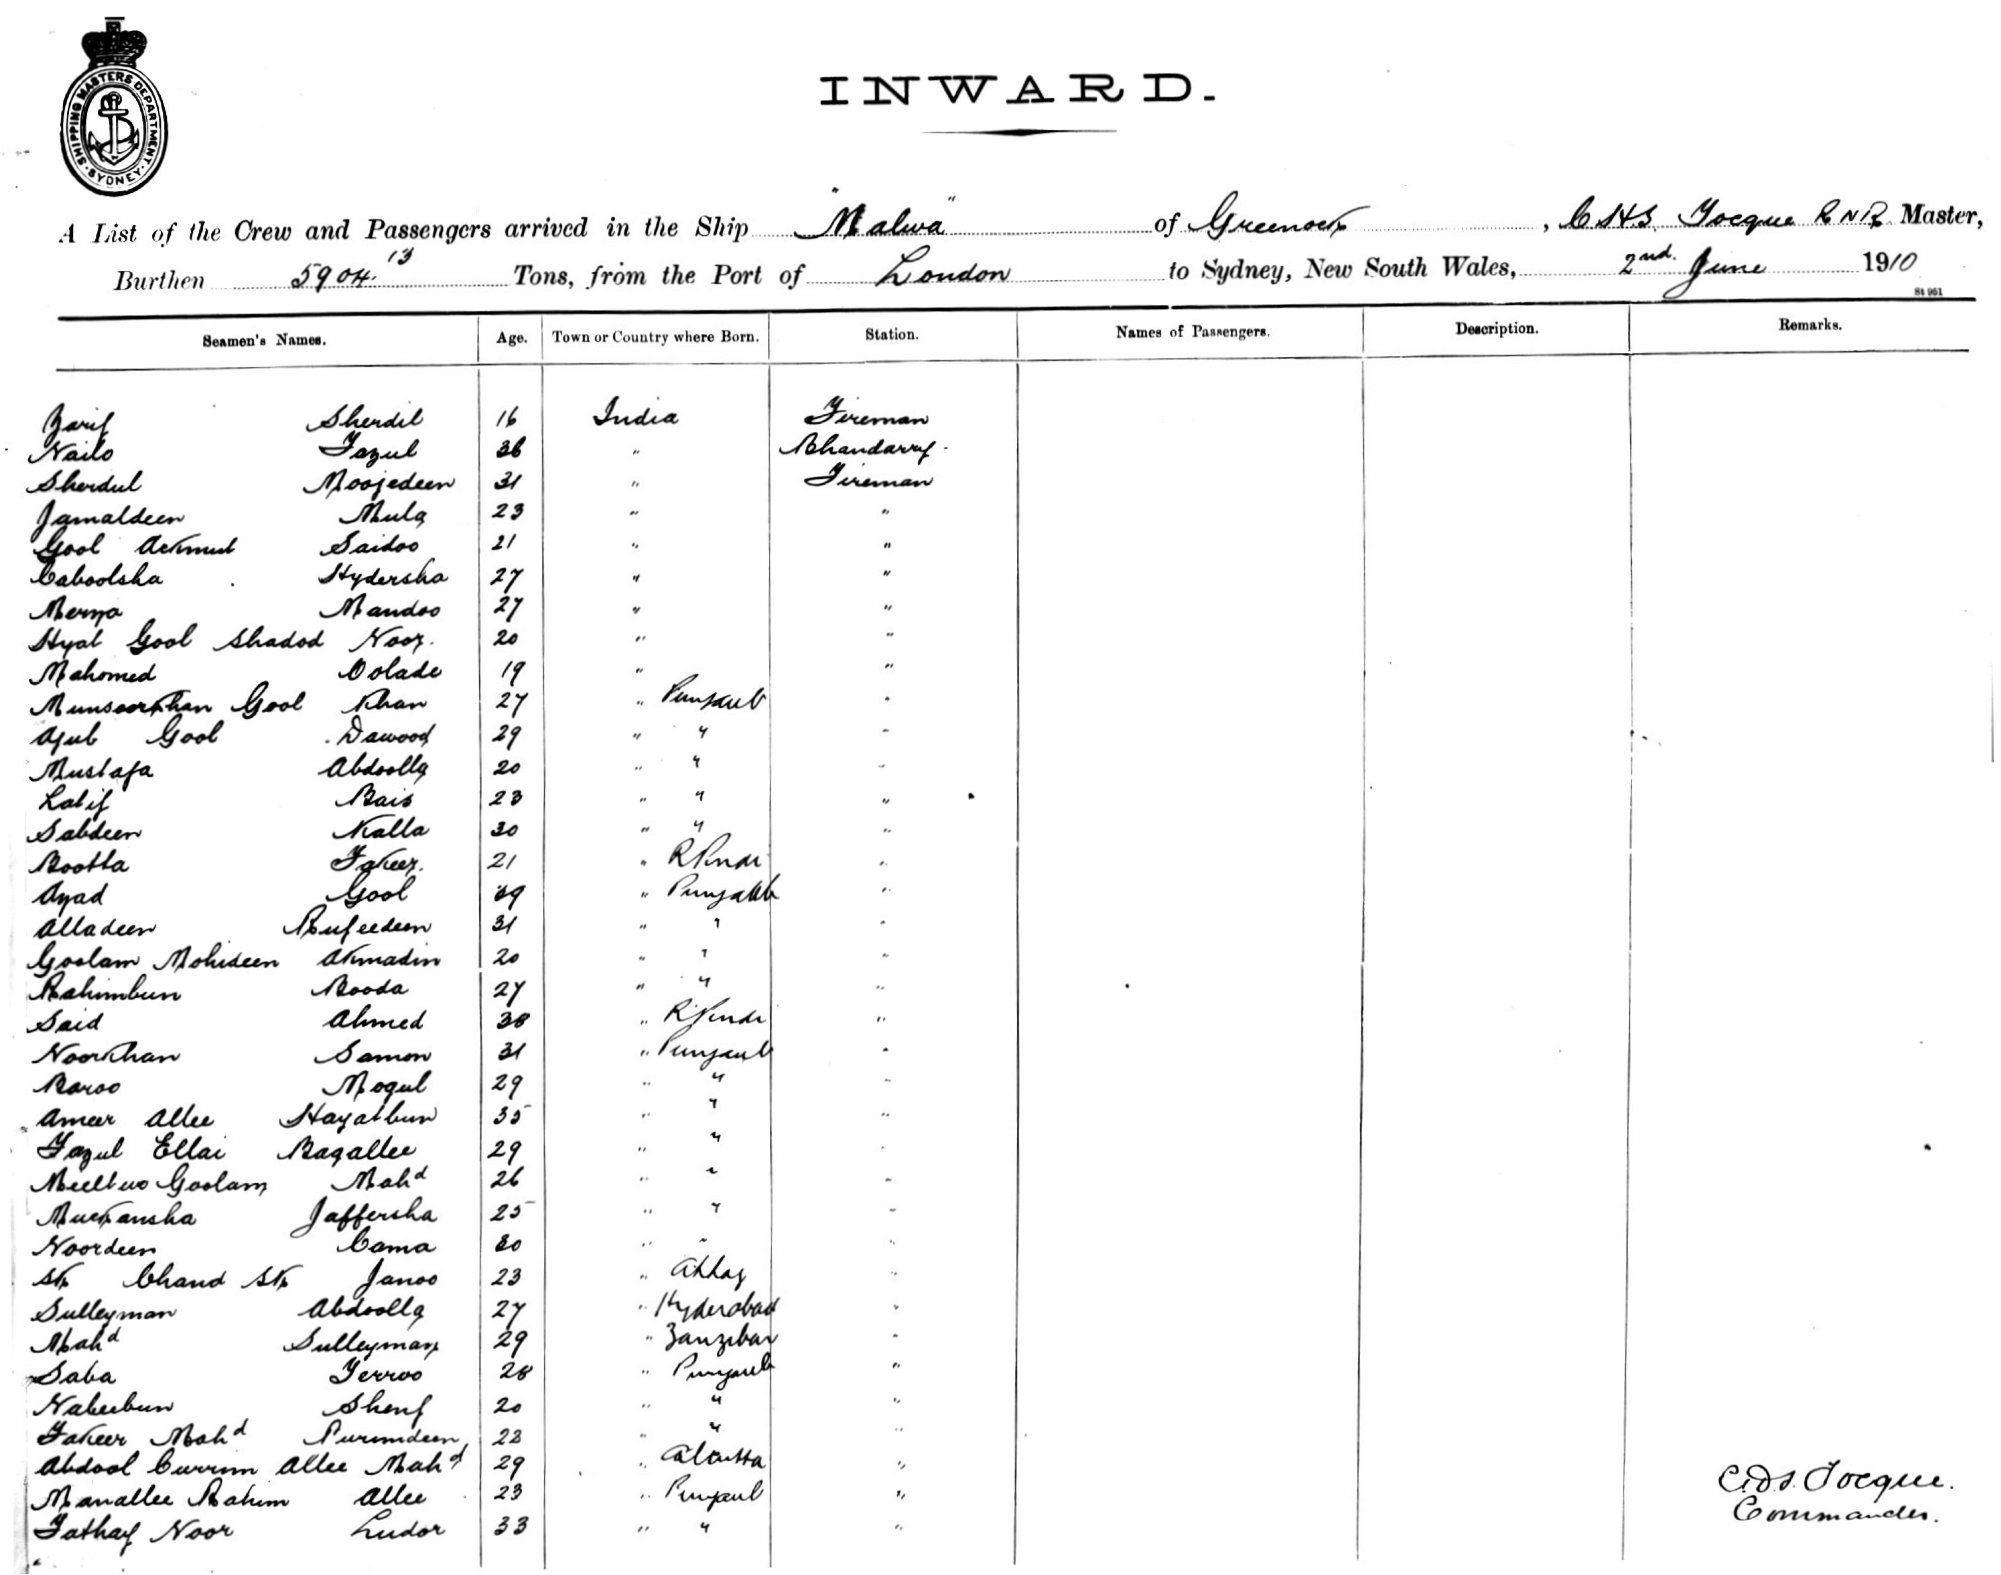 SHIPPING MASTERS DEPARTMENT · SYDNEY ·
INWARD.
A List of the Crew and Passengers arrived in the Ship "Malwa" of Greenock, Tocque R N R Master,
Burthen 5904 13 Tons, from the Port of London to Sydney, New South Wales, 2nd June 1910
St 951
Seamen's Names. Age. Town or Country where Born. Station. Names of Passengers. Description. Remarks.
Zarif Sherdil 16 India Fireman
Nailo Fazul 36 " Bhandarry
Sherdul Moojedeen 31 " Fireman
Jamaldeen Mula 23 " "
Gool Saidoo 21 " "
Caboolsha Hydersha 27 " "
Merza Mandoo 27 " "
Hyat Gool Shadod Noor. 20 " "
Mahomed Oolade 19 " "
Munsoorkhan Gool Khan 27 " Punjaub "
Ajub Gool Dawood 29 " " "
Mustafa Abdoolla 20 " " "
Latif Bais 23 " " "
Sabdeen Kalla 30 " " "
Bootta Fakeer. 21 " R Pindi "
Ayad Gool 39 " Punjaub "
Alladeen Rufeedeen 31 " " "
Goolam Mohideen Akmadin 20 " " "
Rahimbun Booda 27 " " "
Said Ahmed 38 " R Pindi "
Noorkhan Samon 31 " Punjaub "
Baroo Mogul 29 " " "
Ameer Allee Hayatbun 35 " " "
Fazul Ellai Bagallee 29 " " "
Goolam Mahd 26 " " "
Muckansha Jaffersha 25 " " "
Noordeen Cama 30 " " "
Sk Chand Sk Janoo 23 " "
Sulleyman Abdoolla 27 " Hyderabad "
Mahd Sulleyman 29 " Zanzibar "
Saba Ferroo 28 " Punjaub "
Nabeebun Sherif 20 " " "
Fakeer Mahd Purumdeen 22 " " "
Abdool Currim Allee Mahd 29 " Calcutta "
Manallee Rahim Allee 23 " Punjaub "
Fathay Noor Ludor 33 " " "
C.D.S. Tocque.
Commander.